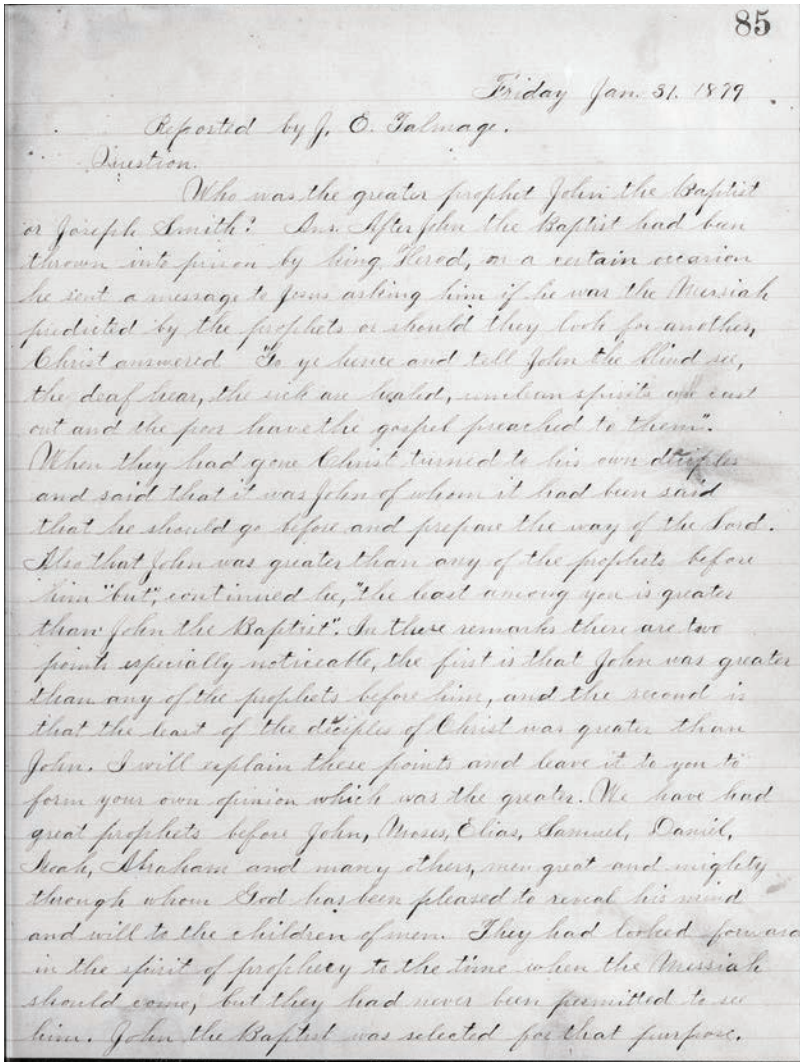 85
Friday Jan. 31. 1879
Reported by J. E. Talmage.
Question.
Who was the greater prophet John the Baptist
or Joseph Smith? Ans. After John the Baptist had been
thrown into prison by king Herod, on a certain occasion
he sent a message to Jesus asking him if he was the Messiah
predicted by the prophets or should they look for another,
Christ answered "Go ye hence and tell John the blind see,
the deaf hear, the sick are healed, unclean spirits are cast
out and the poor have the gospel preached to them".
When they had gone Christ turned to his own disciples
and said that it was John of whom it had been said
that he should go before and prepare the way of the Lord.
Also that John was greater than any of the prophets before
him "but", continued he, "the least among you is greater
than John the Baptist". In these remarks there are two
points especially noticeable, the first is that John was greater
than any of the prophets before him, and the second is
that the least of the disciples of Christ was greater than
John. I will explain these points and leave it to you to
form your own opinion which was the greater. We have had
great prophets before John, Moses, Elias, Samuel, Daniel,
Noah, Abraham and many others, men great and mighty
through whom God has been pleased to reveal his mind
and will to the children of men. They had looked forward
in the spirit of prophecy to the time when the Messiah
should come, but they had never been permitted to see
him. John the Baptist was selected for that purpose.